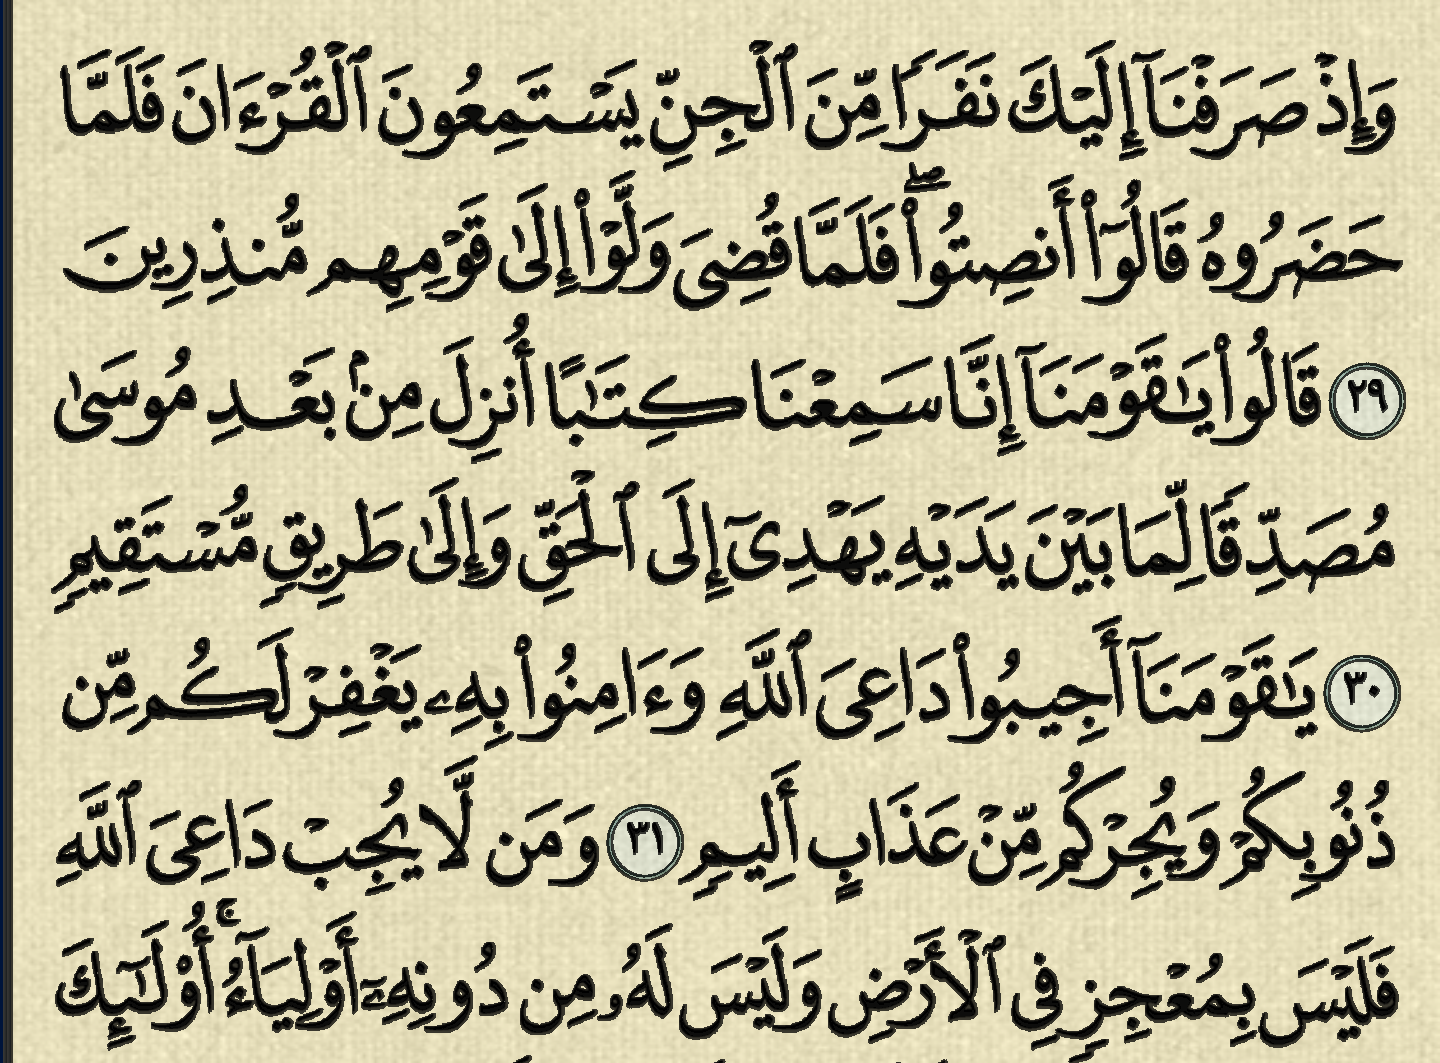 وَإِذْ صَرَفْنَآ إِلَيْكَ نَفَرًا مِّنَ ٱلْجِنِّ يَسْتَمِعُونَ ٱلْقُرْءَانَ فَلَمَّا
حَضَرُوهُ قَالُوٓا۟ أَنصِتُوا۟ ۖ فَلَمَّا قُضِىَ وَلَّوْا۟ إِلَىٰ قَوْمِهِم مُّنذِرِينَ
٢٩ قَالُوا۟ يَـٰقَوْمَنَآ إِنَّا سَمِعْنَا كِتَـٰبًا أُنزِلَ مِنۢ بَعْدِ مُوسَىٰ
مُصَدِّقًا لِّمَا بَيْنَ يَدَيْهِ يَهْدِىٓ إِلَى ٱلْحَقِّ وَإِلَىٰ طَرِيقٍ مُّسْتَقِيمٍ
٣٠ يَـٰقَوْمَنَآ أَجِيبُوا۟ دَاعِىَ ٱللَّهِ وَءَامِنُوا۟ بِهِۦ يَغْفِرْ لَكُم مِّن
ذُنُوبِكُمْ وَيُجِرْكُم مِّنْ عَذَابٍ أَلِيمٍ ٣١ وَمَن لَّا يُجِبْ دَاعِىَ ٱللَّهِ
فَلَيْسَ بِمُعْجِزٍ فِى ٱلْأَرْضِ وَلَيْسَ لَهُۥ مِن دُونِهِۦٓ أَوْلِيَآءُ ۚ أُو۟لَـٰٓئِكَ